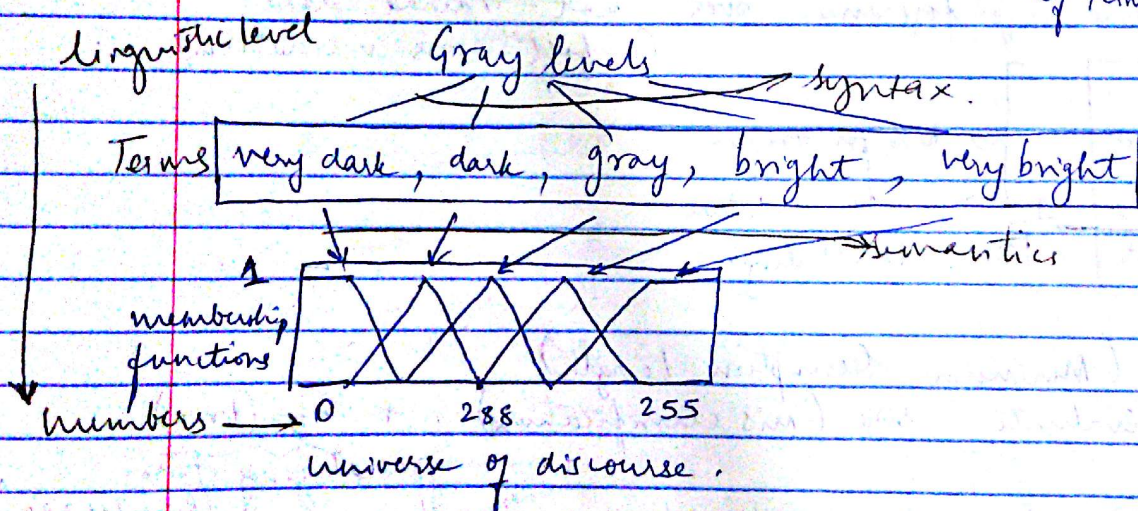 linguistic level
Gray levels
syntax.
Terms very dark, dark, gray, bright, very bright
semantics
1
membership
functions
numbers → 0 288 255
universe of discourse.